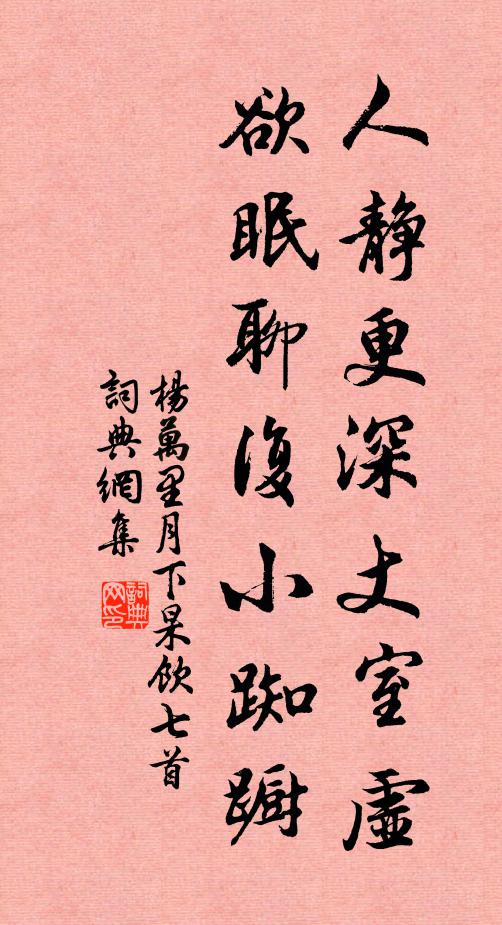 人靜更深丈室虛
欲眠聊復小踟躕
楊萬里月下杲飲七首
詞典網集
詞典网印